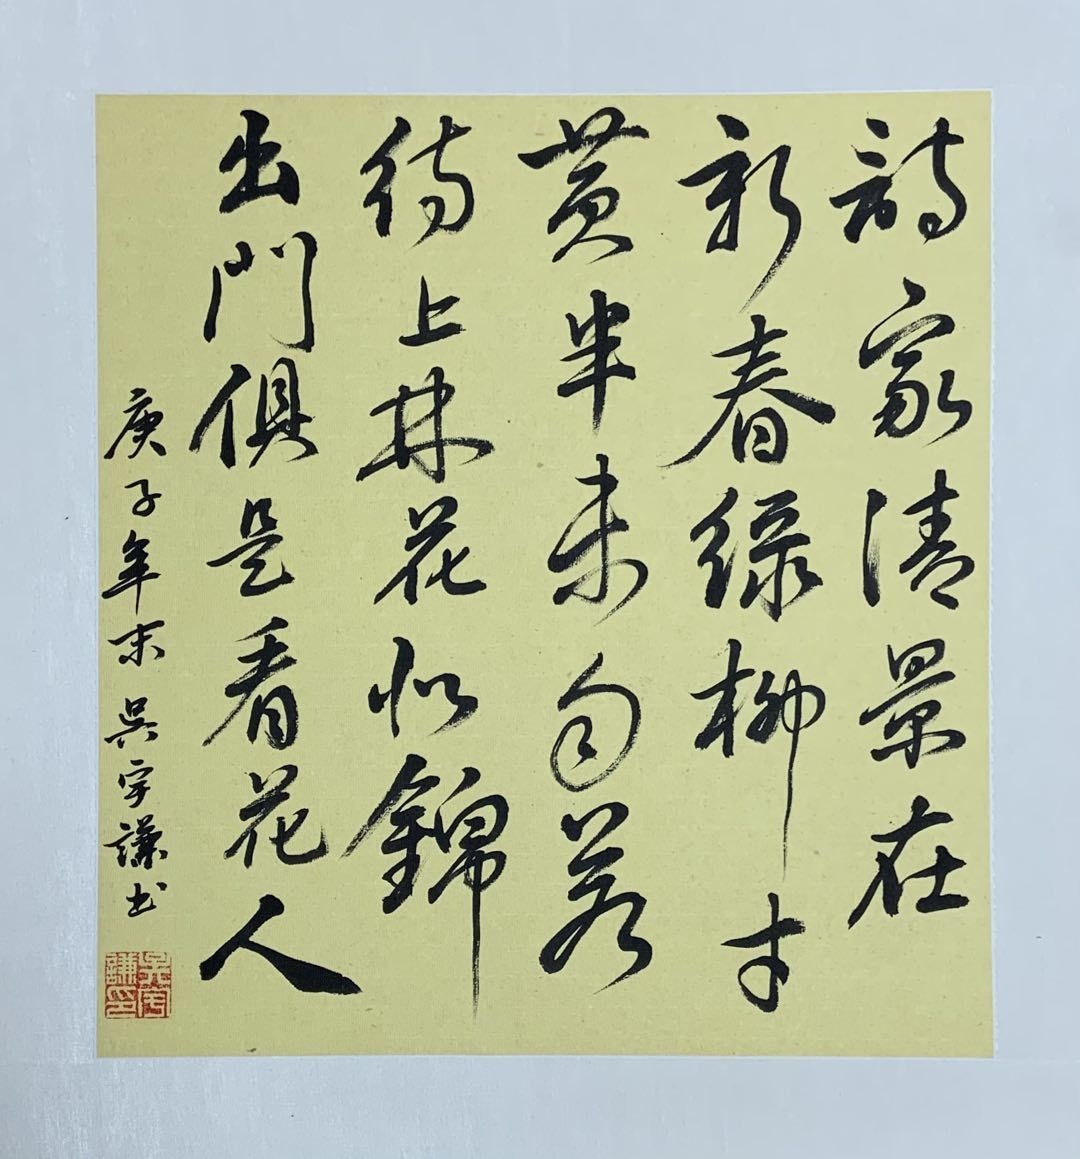 詩家清景在
新春綠柳才
黃半未勻若
待上林花似錦
出門俱是看花人
庚子年末吳宇謙书
吳宇謙印